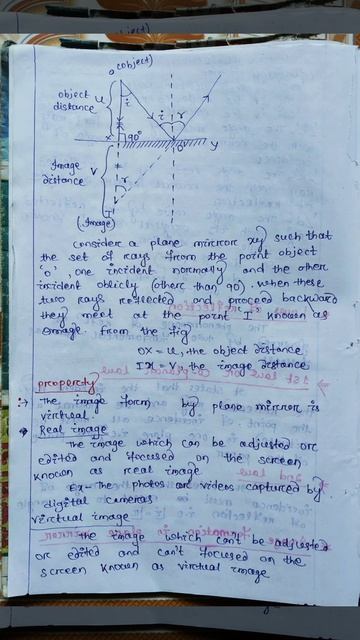 o (object)
object distance u
i
i r
x 90° o' y
Image distance v
r
I
(Image)
Consider a plane mirror xy such that
the set of rays from the point object
'o', one incident normally and the other
incident oblicly (other than 90). when these
two rays reflected and proceed backward
they meet at the point I known as
image from the fig
OX = u, the object distance
IX = v, the image distance
properdty
The image form by plane mirror is
virtual.
Real image
The image which can be adjusted or
edited and focused on the screen
known as real image
Ex- The photos or videos captured by
digital cameras
virtual image
The image which can't be adjusted
or edited and can't focused on the
screen known as virtual image